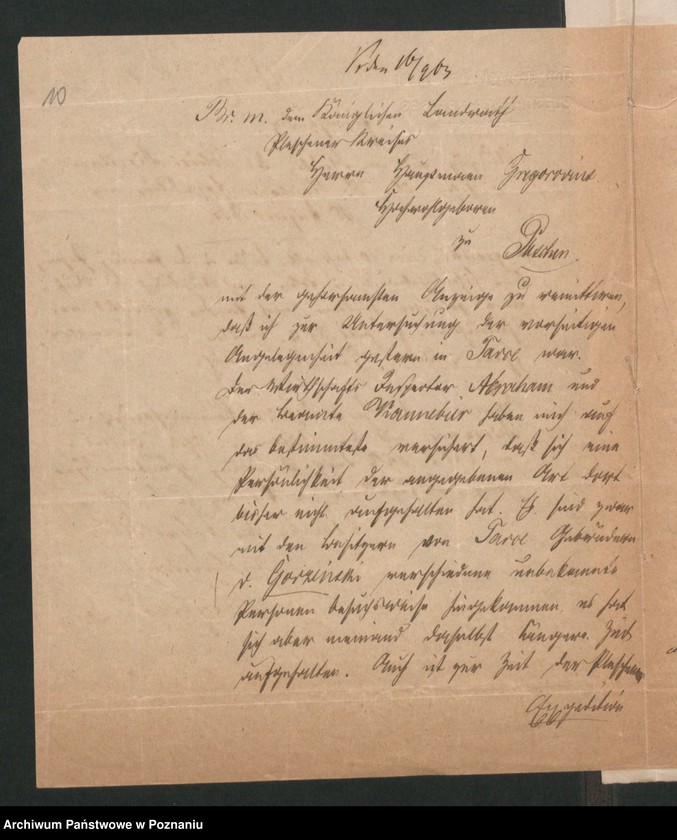 10
16/9 63
Br. m. dem Königlichen Landrath
Pleschener Kreises
Herrn Hauptmann Gregorovius
Hochwohlgeboren
zu Pleschen
mit der gehorsamsten Anzeige zu remittiren,
daß ich zur Untersuchung der vorseitigen
Angelegenheit gestern in Tarce war.
Der Wirthschafts Inspector Abraham und
der Beamte Kannebier haben mich auf
das bestimmteste versichert, daß sich eine
Persönlichkeit der angegebenen Art dort
bisher nicht aufgehalten hat. Es sind zwar
mit den Besitzern von Tarce Gebrüdern
v. Gorzenski verschiedene unbekannte
Personen besuchsweise hingekommen, es hat
sich aber niemand daselbst längere Zeit
aufgehalten. Auch ist zur Zeit der Pleschener
Expedition
Archiwum Państwowe w Poznaniu